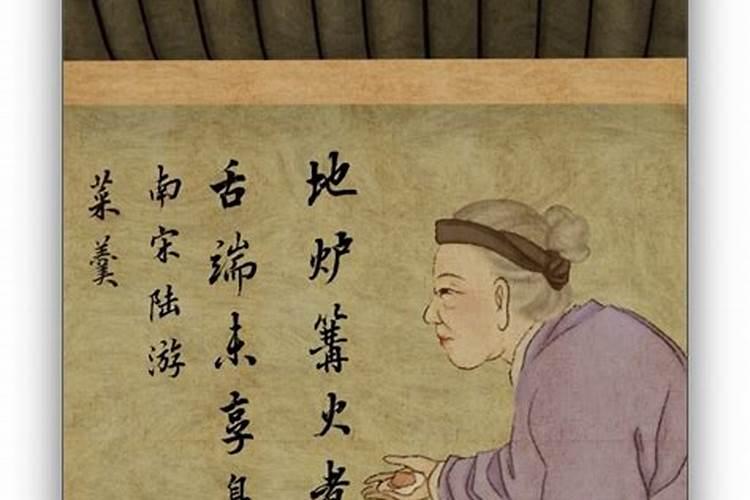 地炉篝火煮
舌端未享
南宋陆游
菜羹